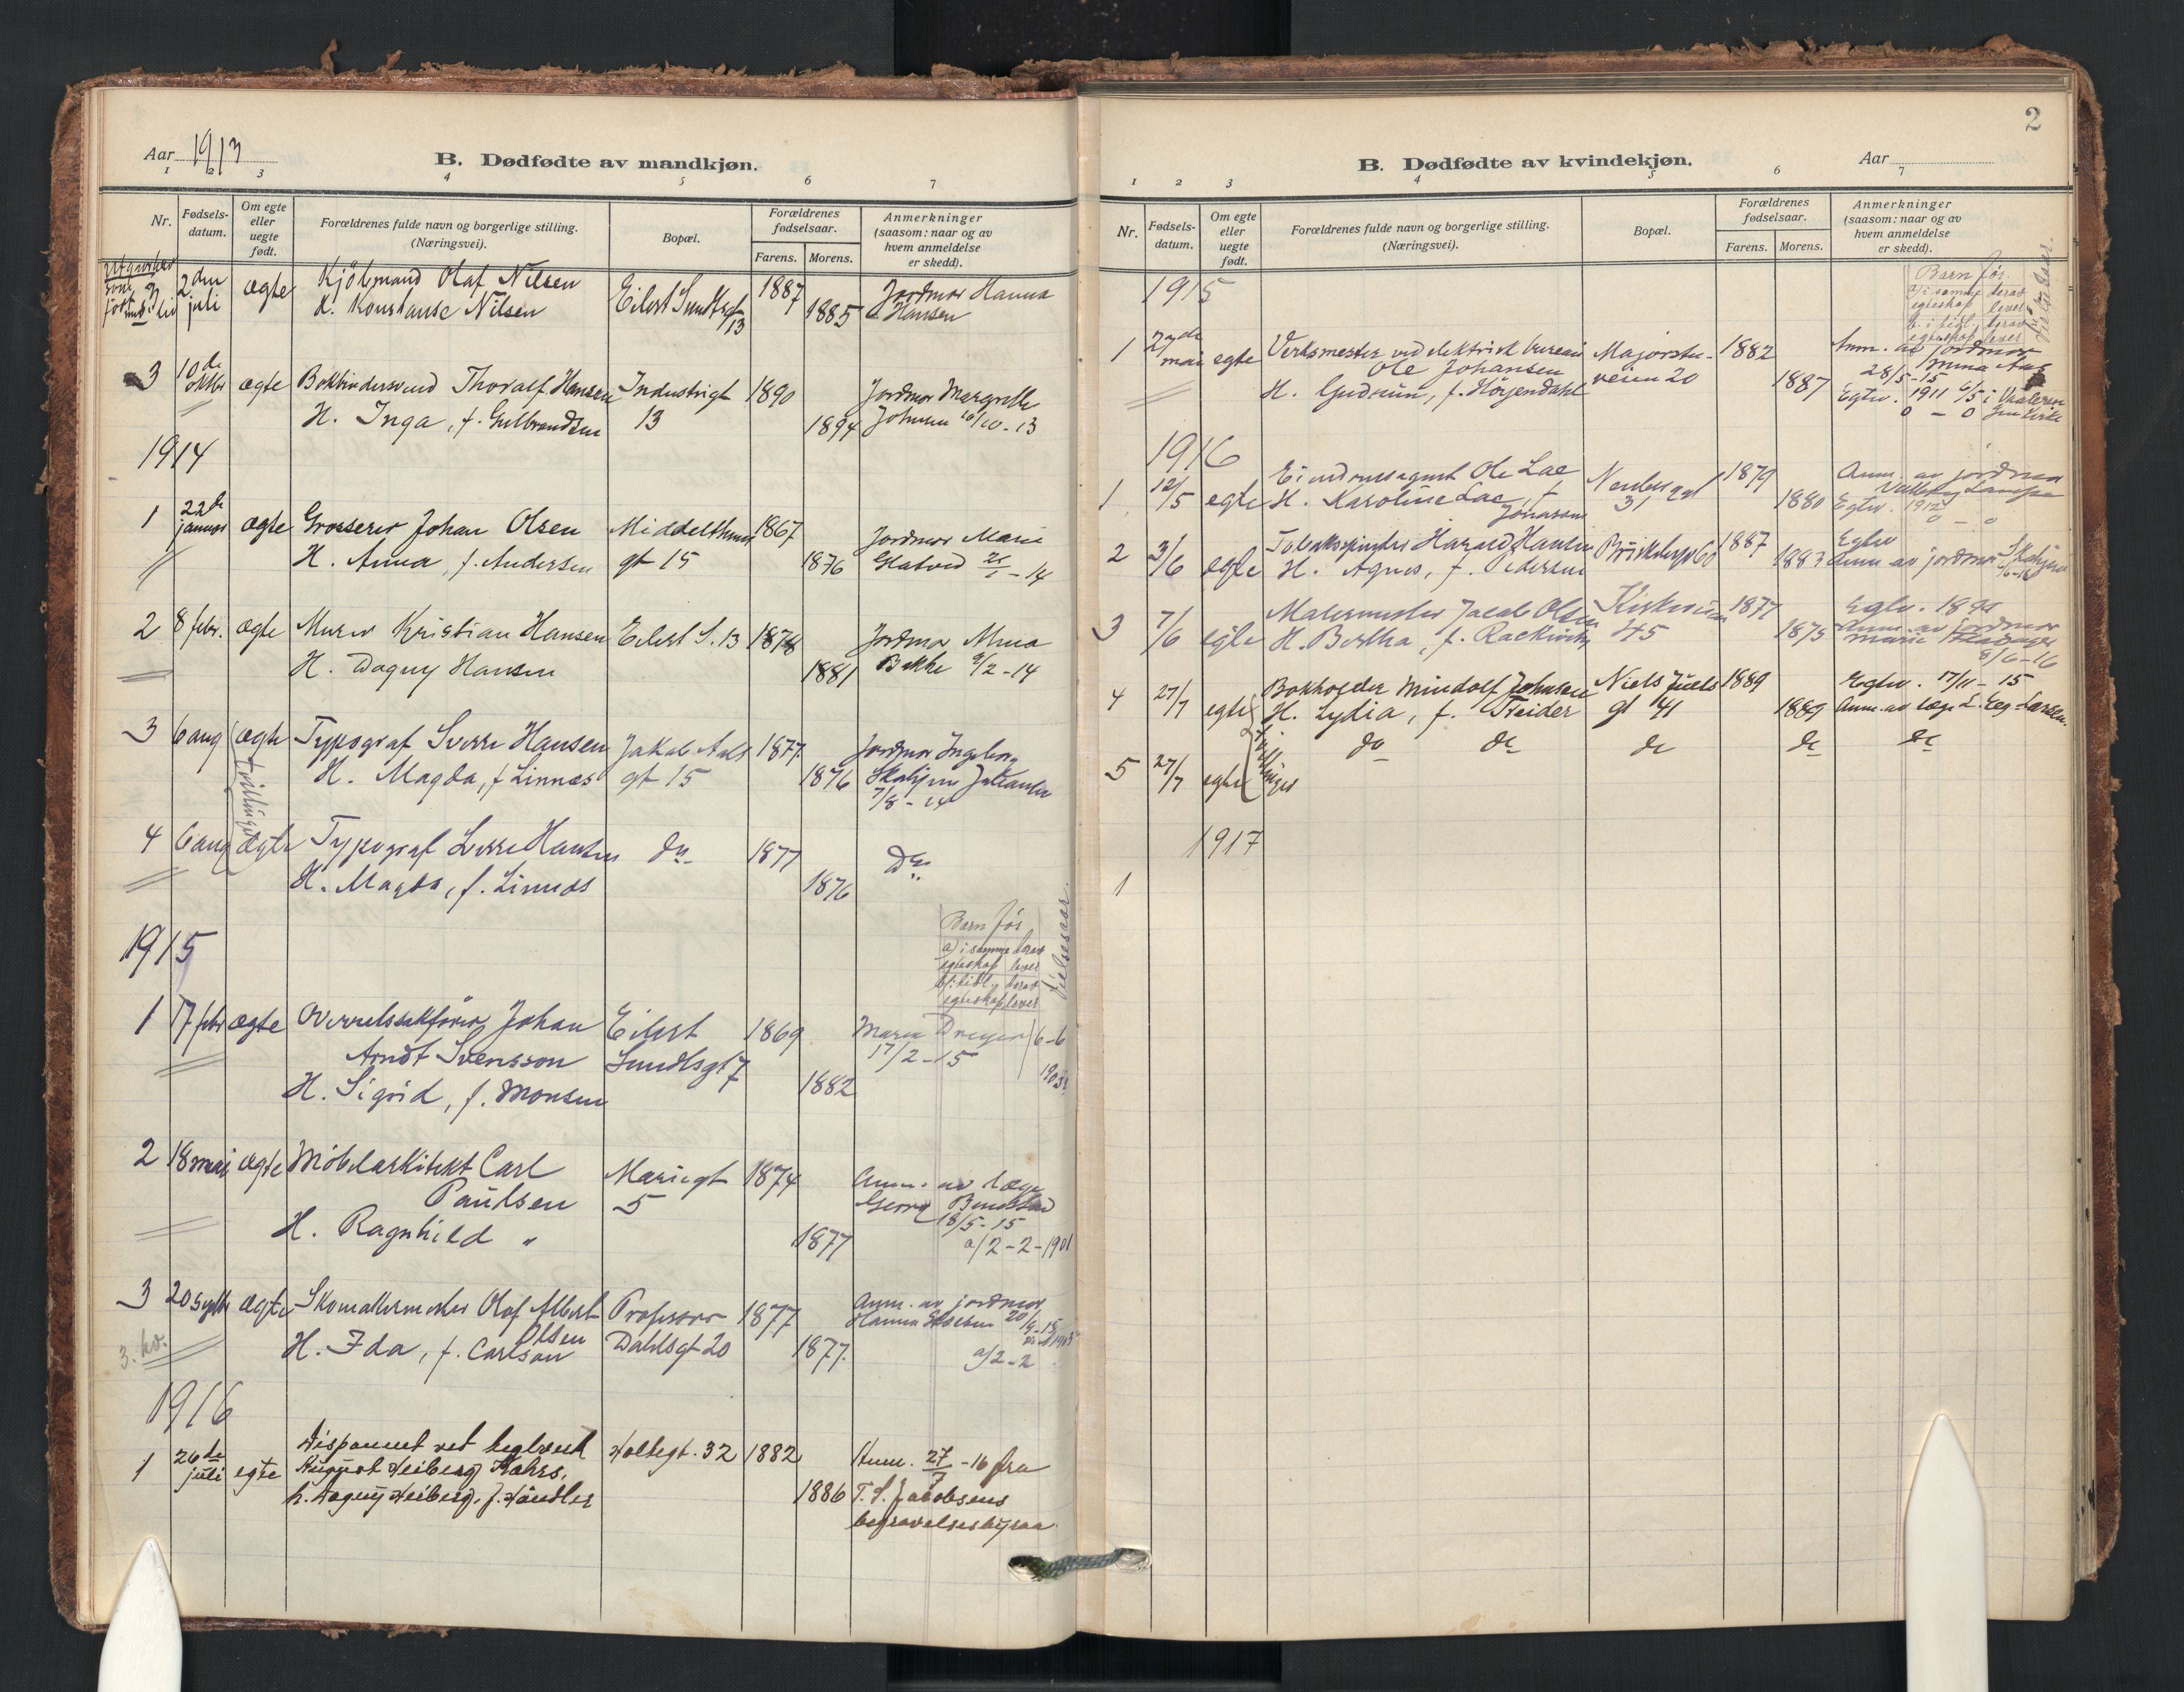 Aar 1913
B. Dødfødte av mandkjøn.
1 2 3 4 5 6 7
Nr.
Fødsels-
datum.
Om egte
eller
uegte
født.
Forældrenes fulde navn og borgerlige stilling.
(Næringsvei).
Bopæl.
Forældrenes
fødselsaar.
Farens. Morens.
Anmerkninger
(saasom: naar og av
hvem anmeldelse
er skedd).
2den
juli
ægte
Kjøbmand Olaf Nilsen
H. Konstanse Nilsen
Eilert Sundtsgt
13
1887
1885
Jordmor Hanna
Hansen
3
10de
oktbr
ægte
Bokbindersvend Thoralf Hansen
H. Inga, f. Gulbrandsen
Industrigt
13
1890
1894
Jordmor Margrethe
Johnsen 10/10-13
1914
1
22de
januar
ægte
Grosserer Johan Olsen
H. Anna, f. Andersen
Middelthuns
gt 15
1867
1876
Jordmor Marie
2 8 febr. ægte
Murer Kristian Hansen
H. Dagny Hansen
Eilert S. 13
1878
1881
Jordmor
Bakke 9/2-14
3 6 aug ægte
Typograf Sverre Hansen
H. Magda, f Linnæs
Jakob Aals
gt 15
1877
1876
Jordmor Ingeborg
7/8-14
Tvillinger
4 6 aug ægte
Typograf Sverre Hansen
H. Magda, f. Linnæs
do
1877
1876
Do
1915
Barn før
a) i samme derav
egteskap lever
b) i tidl. derav
egteskap lever
Vielsesaar.
1 17 febr ægte
Overretssakfører Johan
Arndt Svensson
H. Sigrid, f. Monsen
Eilert
Sundtsgt 7
1869
1882
Maren Dreyer
17/2-15
6-6
2 18 mai ægte
Møbelarkitekt Carl
Paulsen
H. Ragnhild "
Mariegt
5
1874
1877
Anm. av læge
Georg
18/5-15
a/2-2-1901
3 20 septbr ægte
Skomakermester Olaf Albert
Olsen
H. Ida, f. Carlson
Professor
Dahlsgt 20
1877
1877.
Anm. av jordmor
Hanna 20/9-15
a/2-2
3. kv.
1916
1
26de
juli
egte
Disponent ved teglverk
August Heiberg Kahrs.
h. Dagny Heiberg, f. Händler
Holtegt. 32
1882
1886
Anm. 27/7-16 fra
T. S. Jacobsens
begravelsesbyraa.
2
B. Dødfødte av kvindekjøn.
Aar
1 2 3 4 5 6 7
Nr.
Fødsels-
datum.
Om egte
eller
uegte
født.
Forældrenes fulde navn og borgerlige stilling.
(Næringsvei).
Bopæl.
Forældrenes
fødselsaar.
Farens. Morens.
Anmerkninger
(saasom: naar og av
hvem anmeldelse
er skedd).
1915
Barn før
a) i samme derav
egteskap lever
b. i tidl. derav
egteskap lever
Vielsesaar.
1
27de
mai
egte
Verksmester ved elektrisk bureau
Ole Johansen
H. Gudrun, f. Hörjendahl
Majorstu-
veien 20
1882
1887
Anm. av jordmor
28/5-15
Egtev. 1911 6/5 i Vaaleren
0 - 0
1916
1
12/5
egte
Eiendomsagent Ole Lae
H. Karoline Lae, f
Jonassen
31
1879
1880
Anm. av jordmor
Egtev. 1912
0 - 0
2
3/6
egte
Harald Hansen
H. Agnes, f. Pedersen
Briskebyv 60
1887
1883
Egtev
Anm av jordmor
3
7/6
egte
Malermester Jacob Olsen
H. Bertha, f.
Kirkeveien
45
1877
1875
Egtev.
Anm. av jordmor
8/6-16
4
27/7
egte
Bokholder Mindolf Johnsen
H. Lydia, f. Treider
Niels Juels
gt 41
1889
1889
Egtev. 17/11-15
Anm. av læge L. Eeg-Larsen.
5
27/7
egte
Tvillinger
do do do do do
1917
1